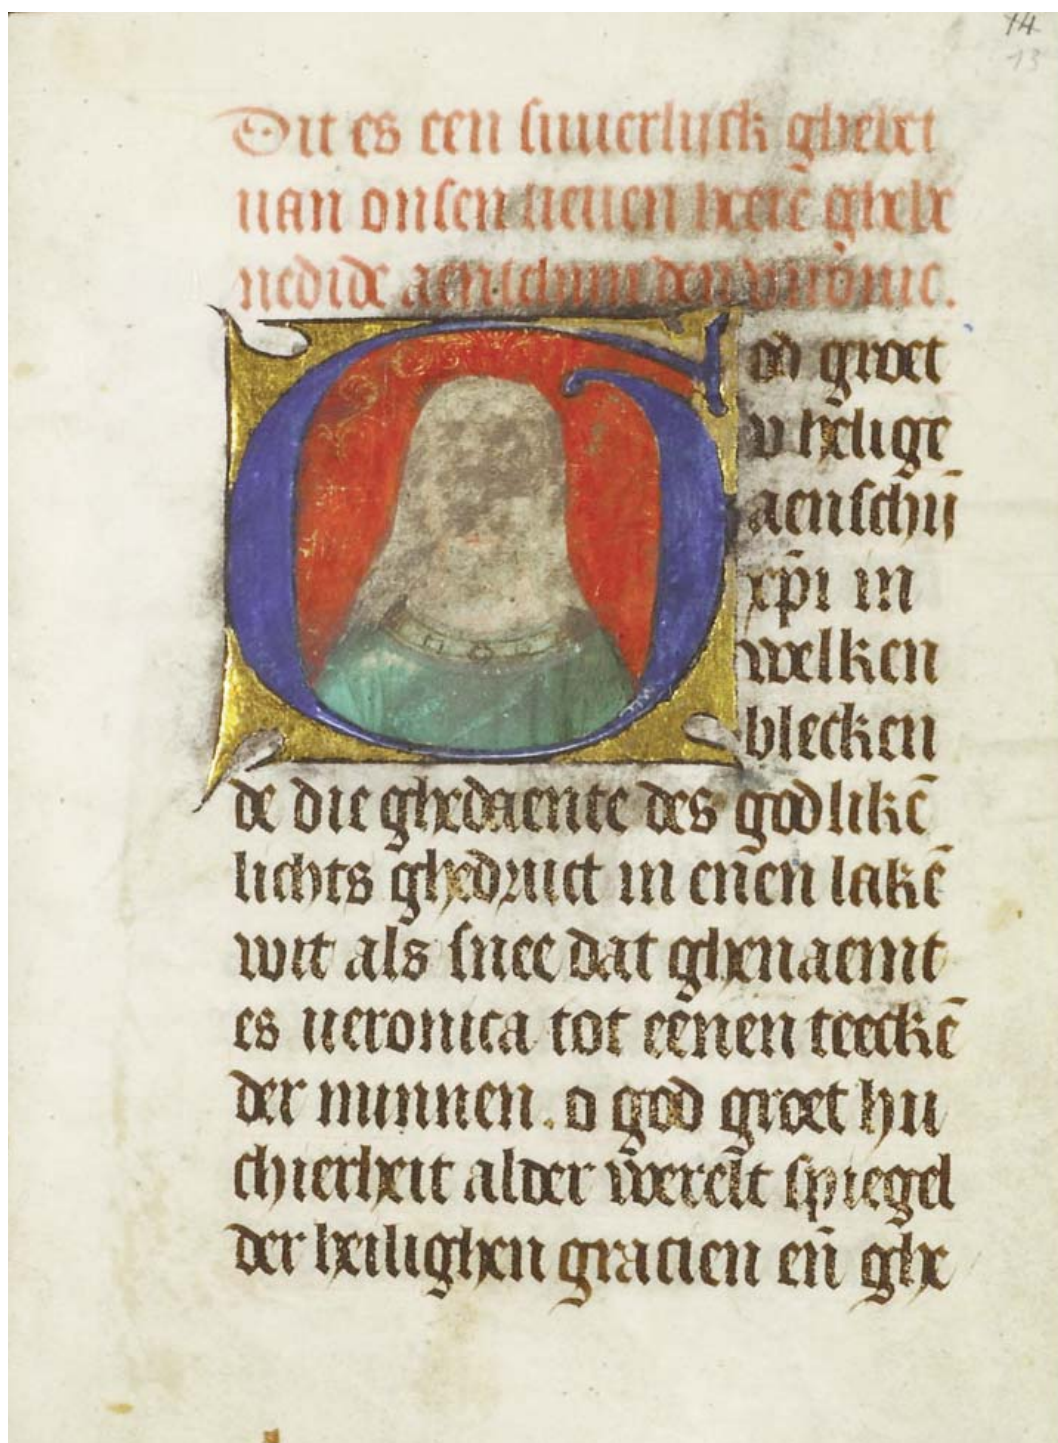 14
13
Dit es een suuerlijck ghebet
uan onsen lieuen heere ghebe
nedide aenschijn den
od groet
v helige
aenschij̄
xp̄i in
welken
blecken
de die ghedaente des godlikē
lichts ghedruct in enen lakē
wit als snee dat ghenaemt
es ueronica tot eenen teeckē
der minnen. o god groet hu
chierheit alder werelt spiegel
der heilighen gracien en̄ ghe